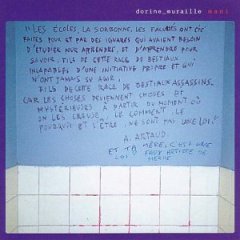 dorine_muraille mani
"LES ÉCOLES, LA SORBONNE, LES FACULTÉS ONT ÉTÉ
FAITES POUR ET PAR DES IGNARES QUI AVAIENT BESOIN
D'ÉTUDIER POUR APPRENDRE, ET D'APPRENDRE POUR
SAVOIR. FILS DE CETTE RACE DE BESTIAUX
INCAPABLES D'UNE INITIATIVE PROPRE ET QUI
N'ONT JAMAIS SU AGIR,
FILS DE CETTE RACE DE BESTIAUX ASSASSINS.
CAR LES CHOSES DEVIENNENT CHOSES DE
MYSTÉRIEUSES À PARTIR DU MOMENT OÙ
ON LES CREUSE, LE COMMENT, LE
POURQUOI ET L'ÊTRE, NE SONT PAS UNE LOI."
A. ARTAUD.
ET TA MÈRE, C'EST UNE
FAUX ARTISTE DE
MERDE